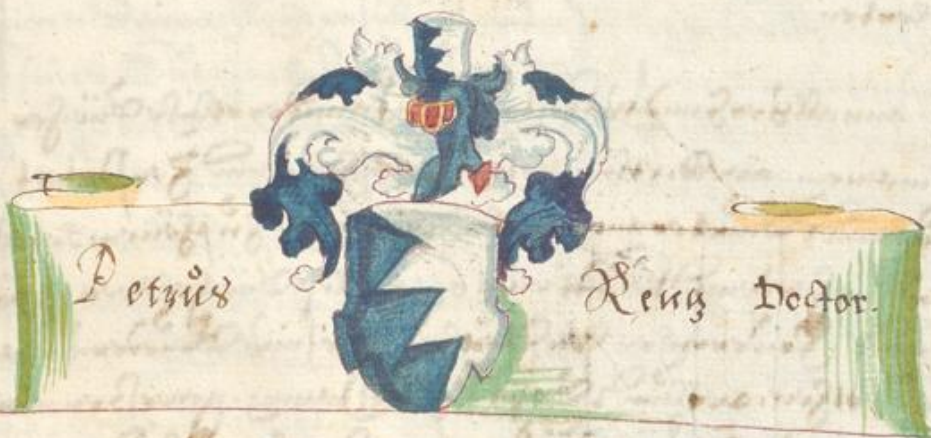 Petrůs Rentz Doctor.